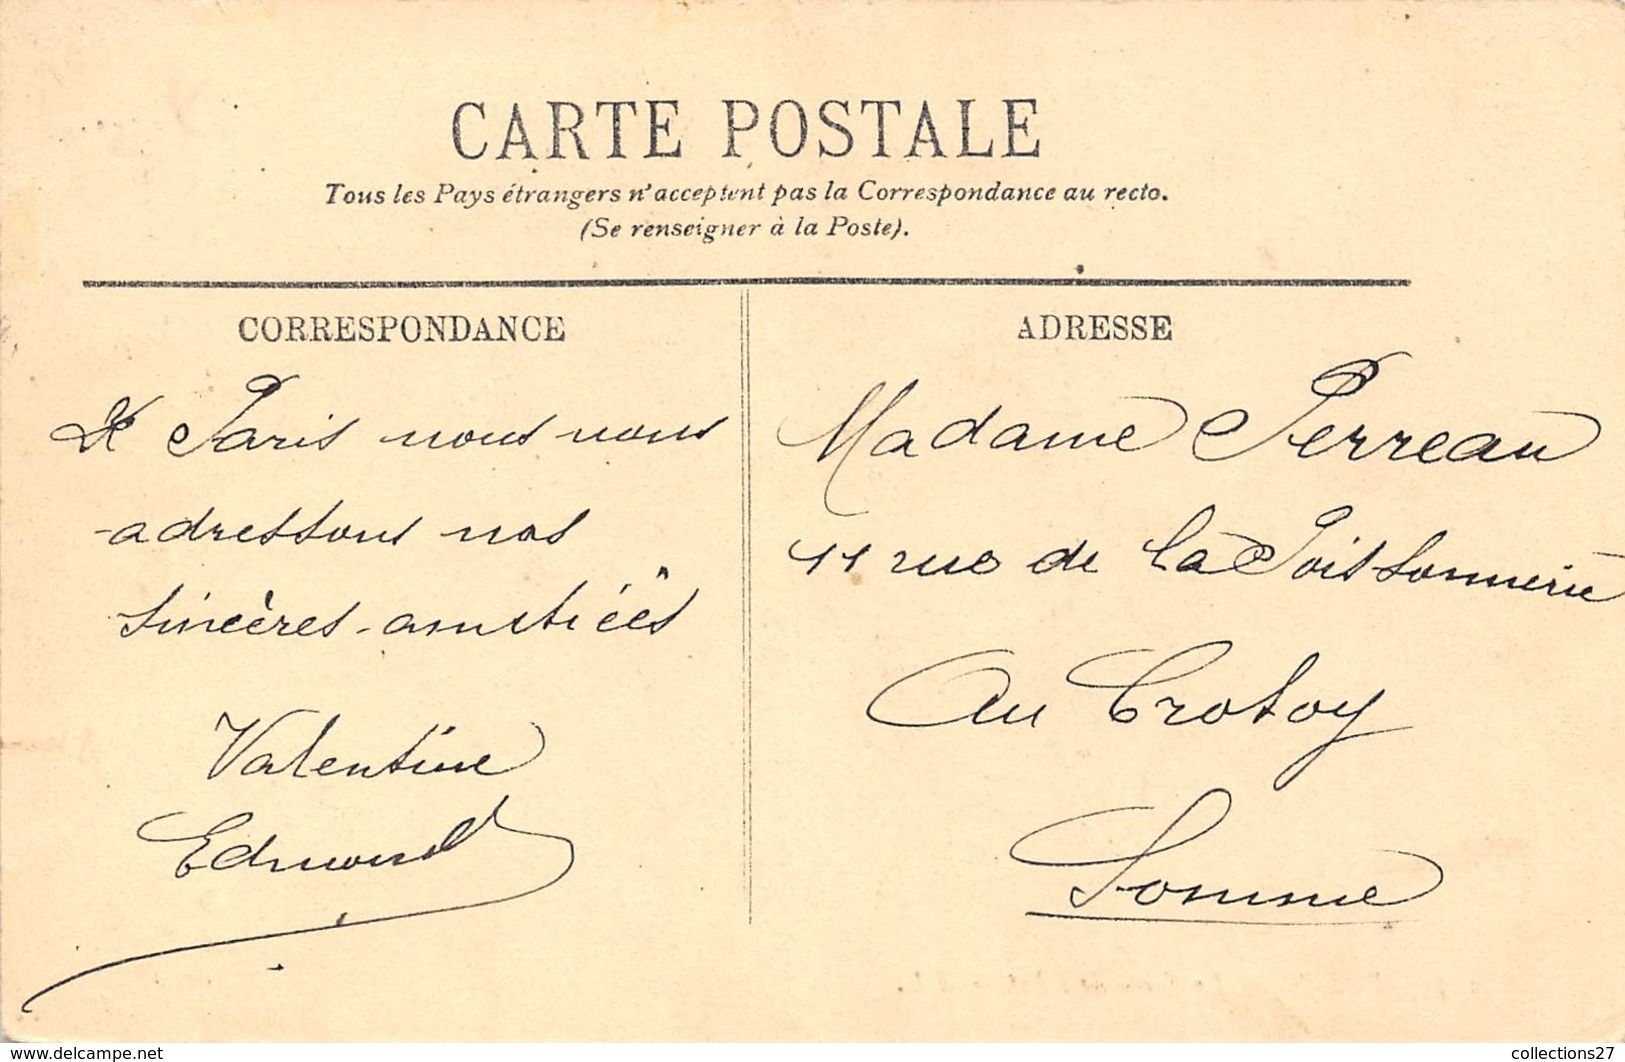 CARTE POSTALE
Tous les Pays étrangers n'acceptent pas la Correspondance au recto.
(Se renseigner à la Poste).
CORRESPONDANCE
De Paris nous vous
adressons nos
sincères amitiéês
Valentine
Edmond
ADRESSE
Madame Perreau
11 rue de la Poissonnerie
Au Crotoy
Somme
www.delcampe.net
collections27